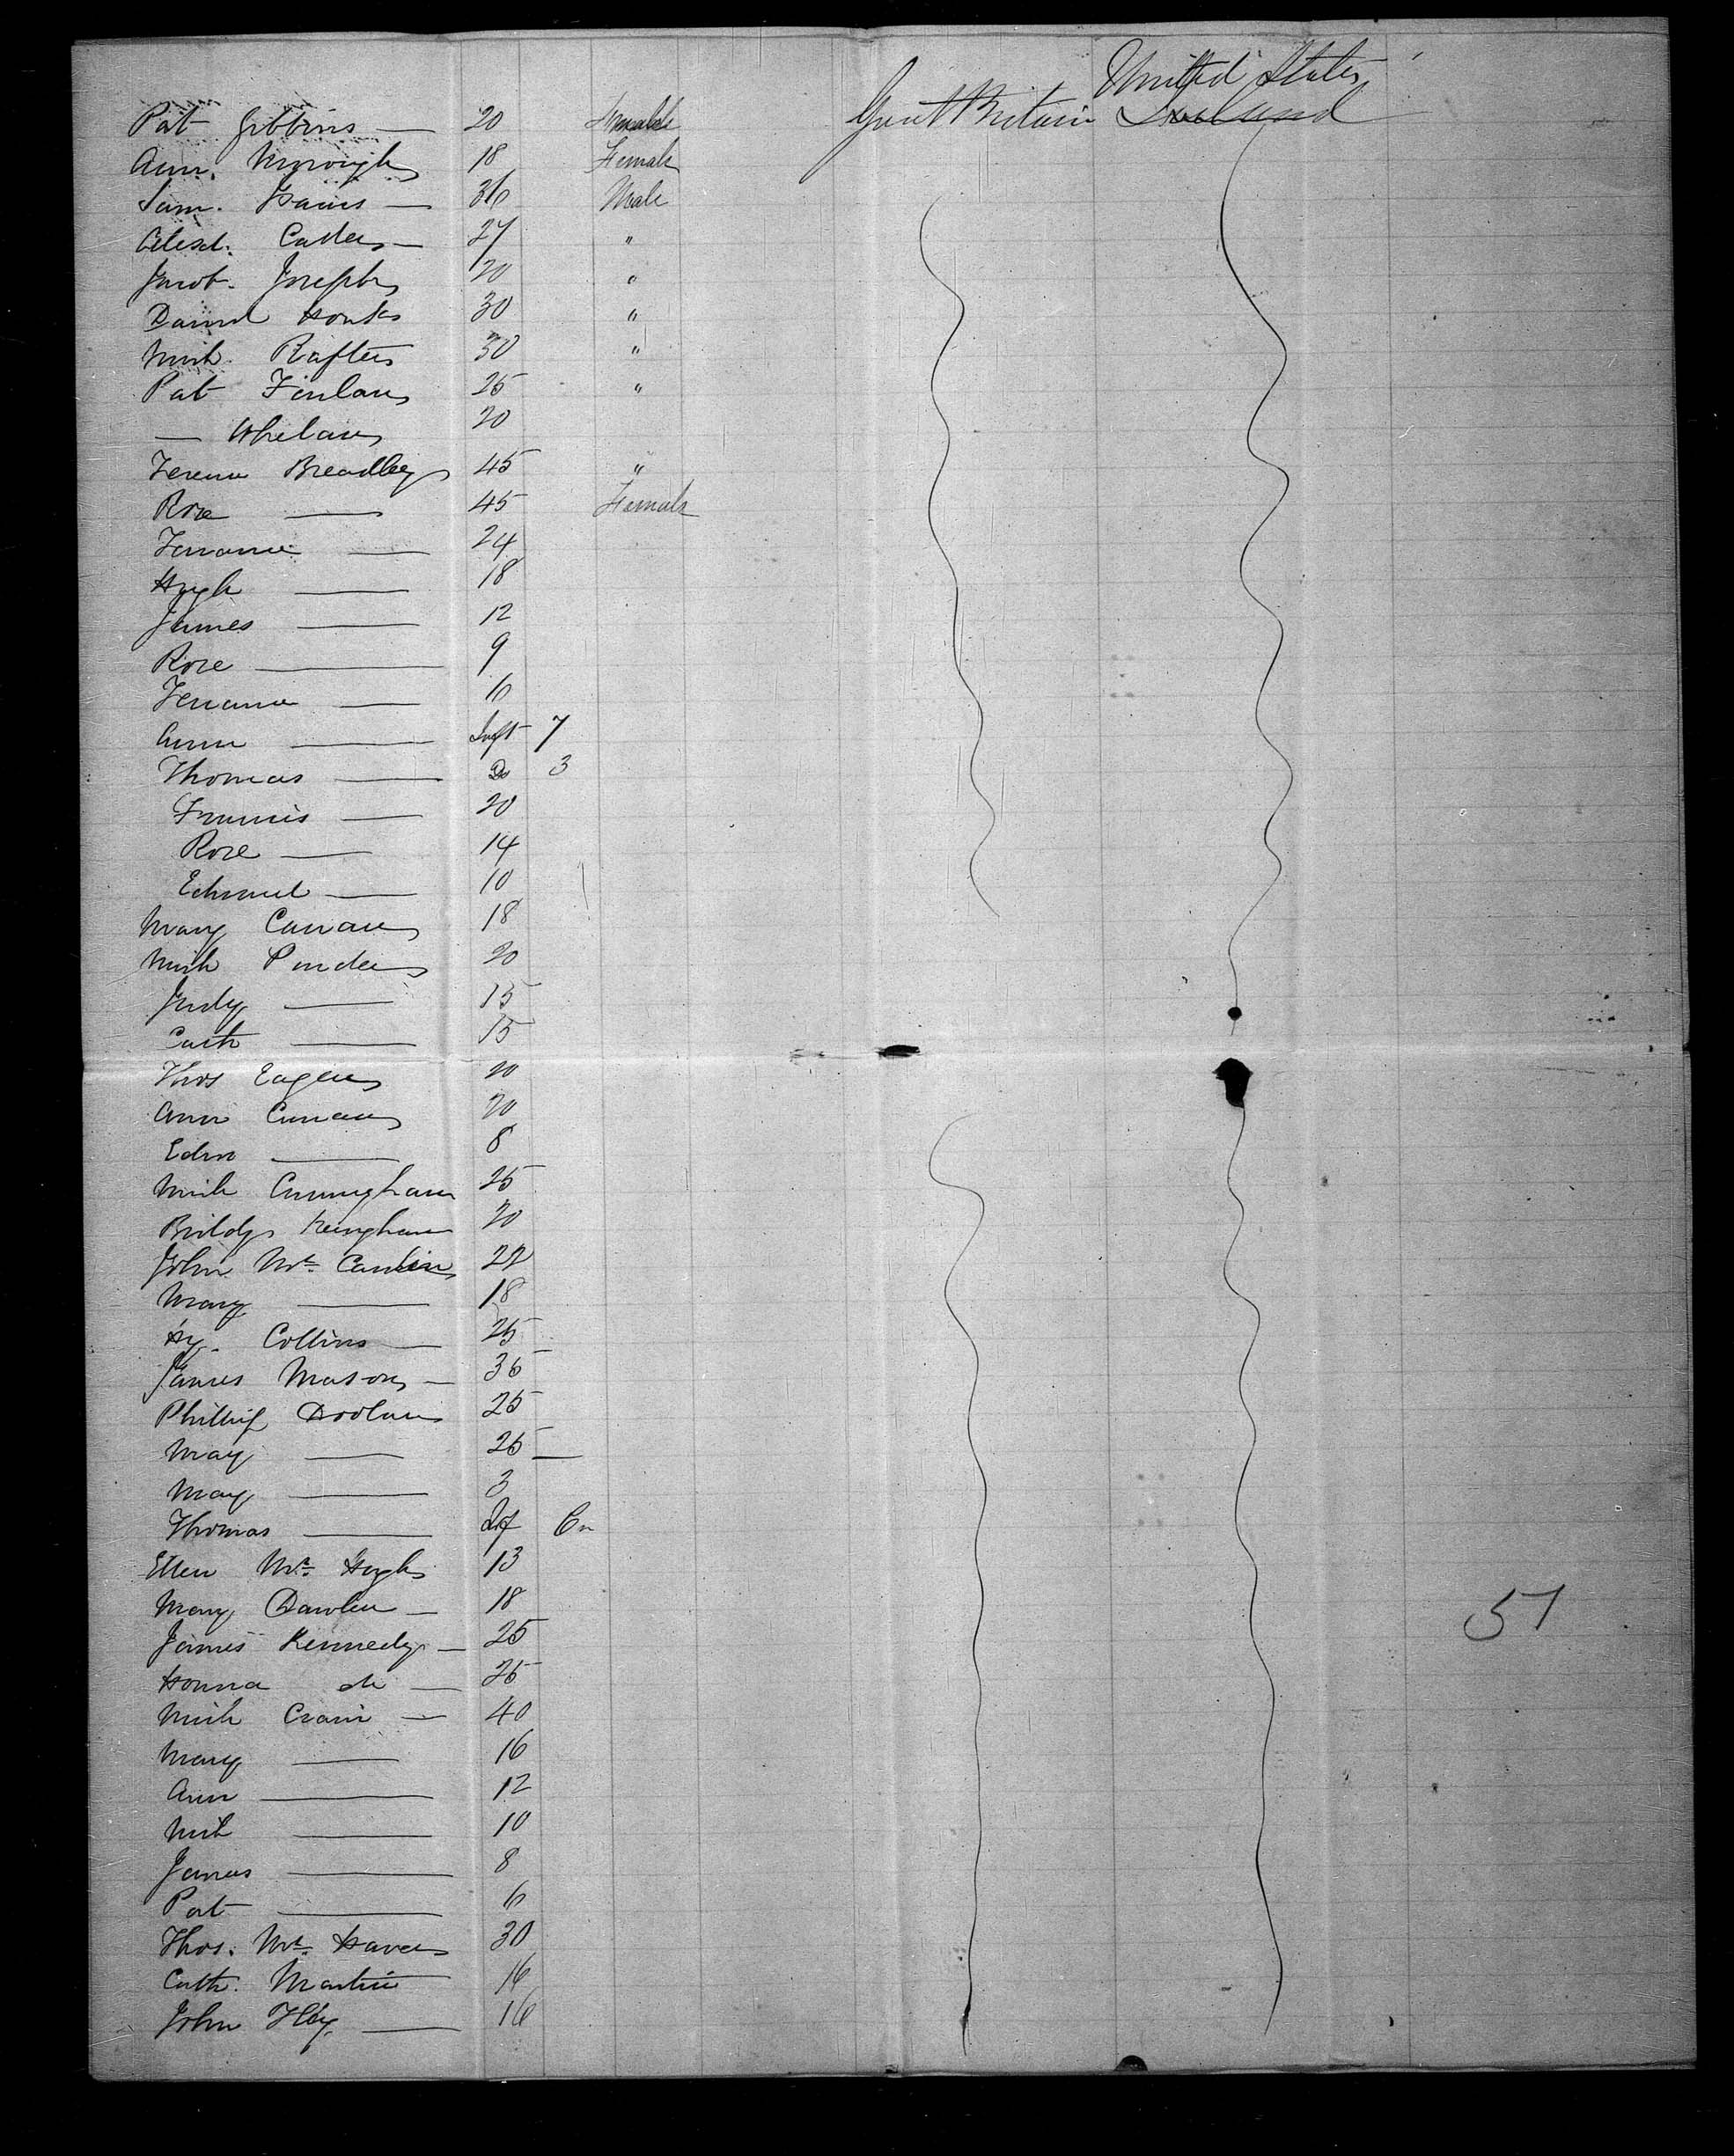 United States
Great Britain Ireland
Pat Gibbins — 20
Ann. Murough 18 Female
Sam. Isaacs — 36 Male
Alexd. — 27 "
Jacob. Josephs 20 "
Daniel Honks 30 "
Mich. Rafters 30 "
Pat Finlan 25 "
— Whelan 20
Terence Breadley 45 "
Rose — 45 Female
Terrance — 24
Hugh — 18
James — 12
Rose — 9
Terrance — 6
Ann — Inft 7
Thomas — Do 3
Francis — 20
Rose — 14
Edmund — 10
Mary Canan 18
Mich 20
Judy — 15
Cath — 15
Thos Eagen 20
Ann Cunan 20
Edm — 8
Mich Cunningham 25
Bridy Keingham 20
John Mc. 22
Mary — 18
Hy. Collins — 25
James Mason — 36
Phillip Doolan 25
May — 25 —
May — 3
Thomas — Inf 6m
Ellen Mc. Hugh 13
Mary Dawlen — 18
James Kennedy — 25
Honna do — 26
Mich Crain — 40
Mary — 16
Ann — 12
Mich — 10
James — 8
Pat — 6
Thos. Mc. Haven 30
Cath. Martin 16
John — 16
51